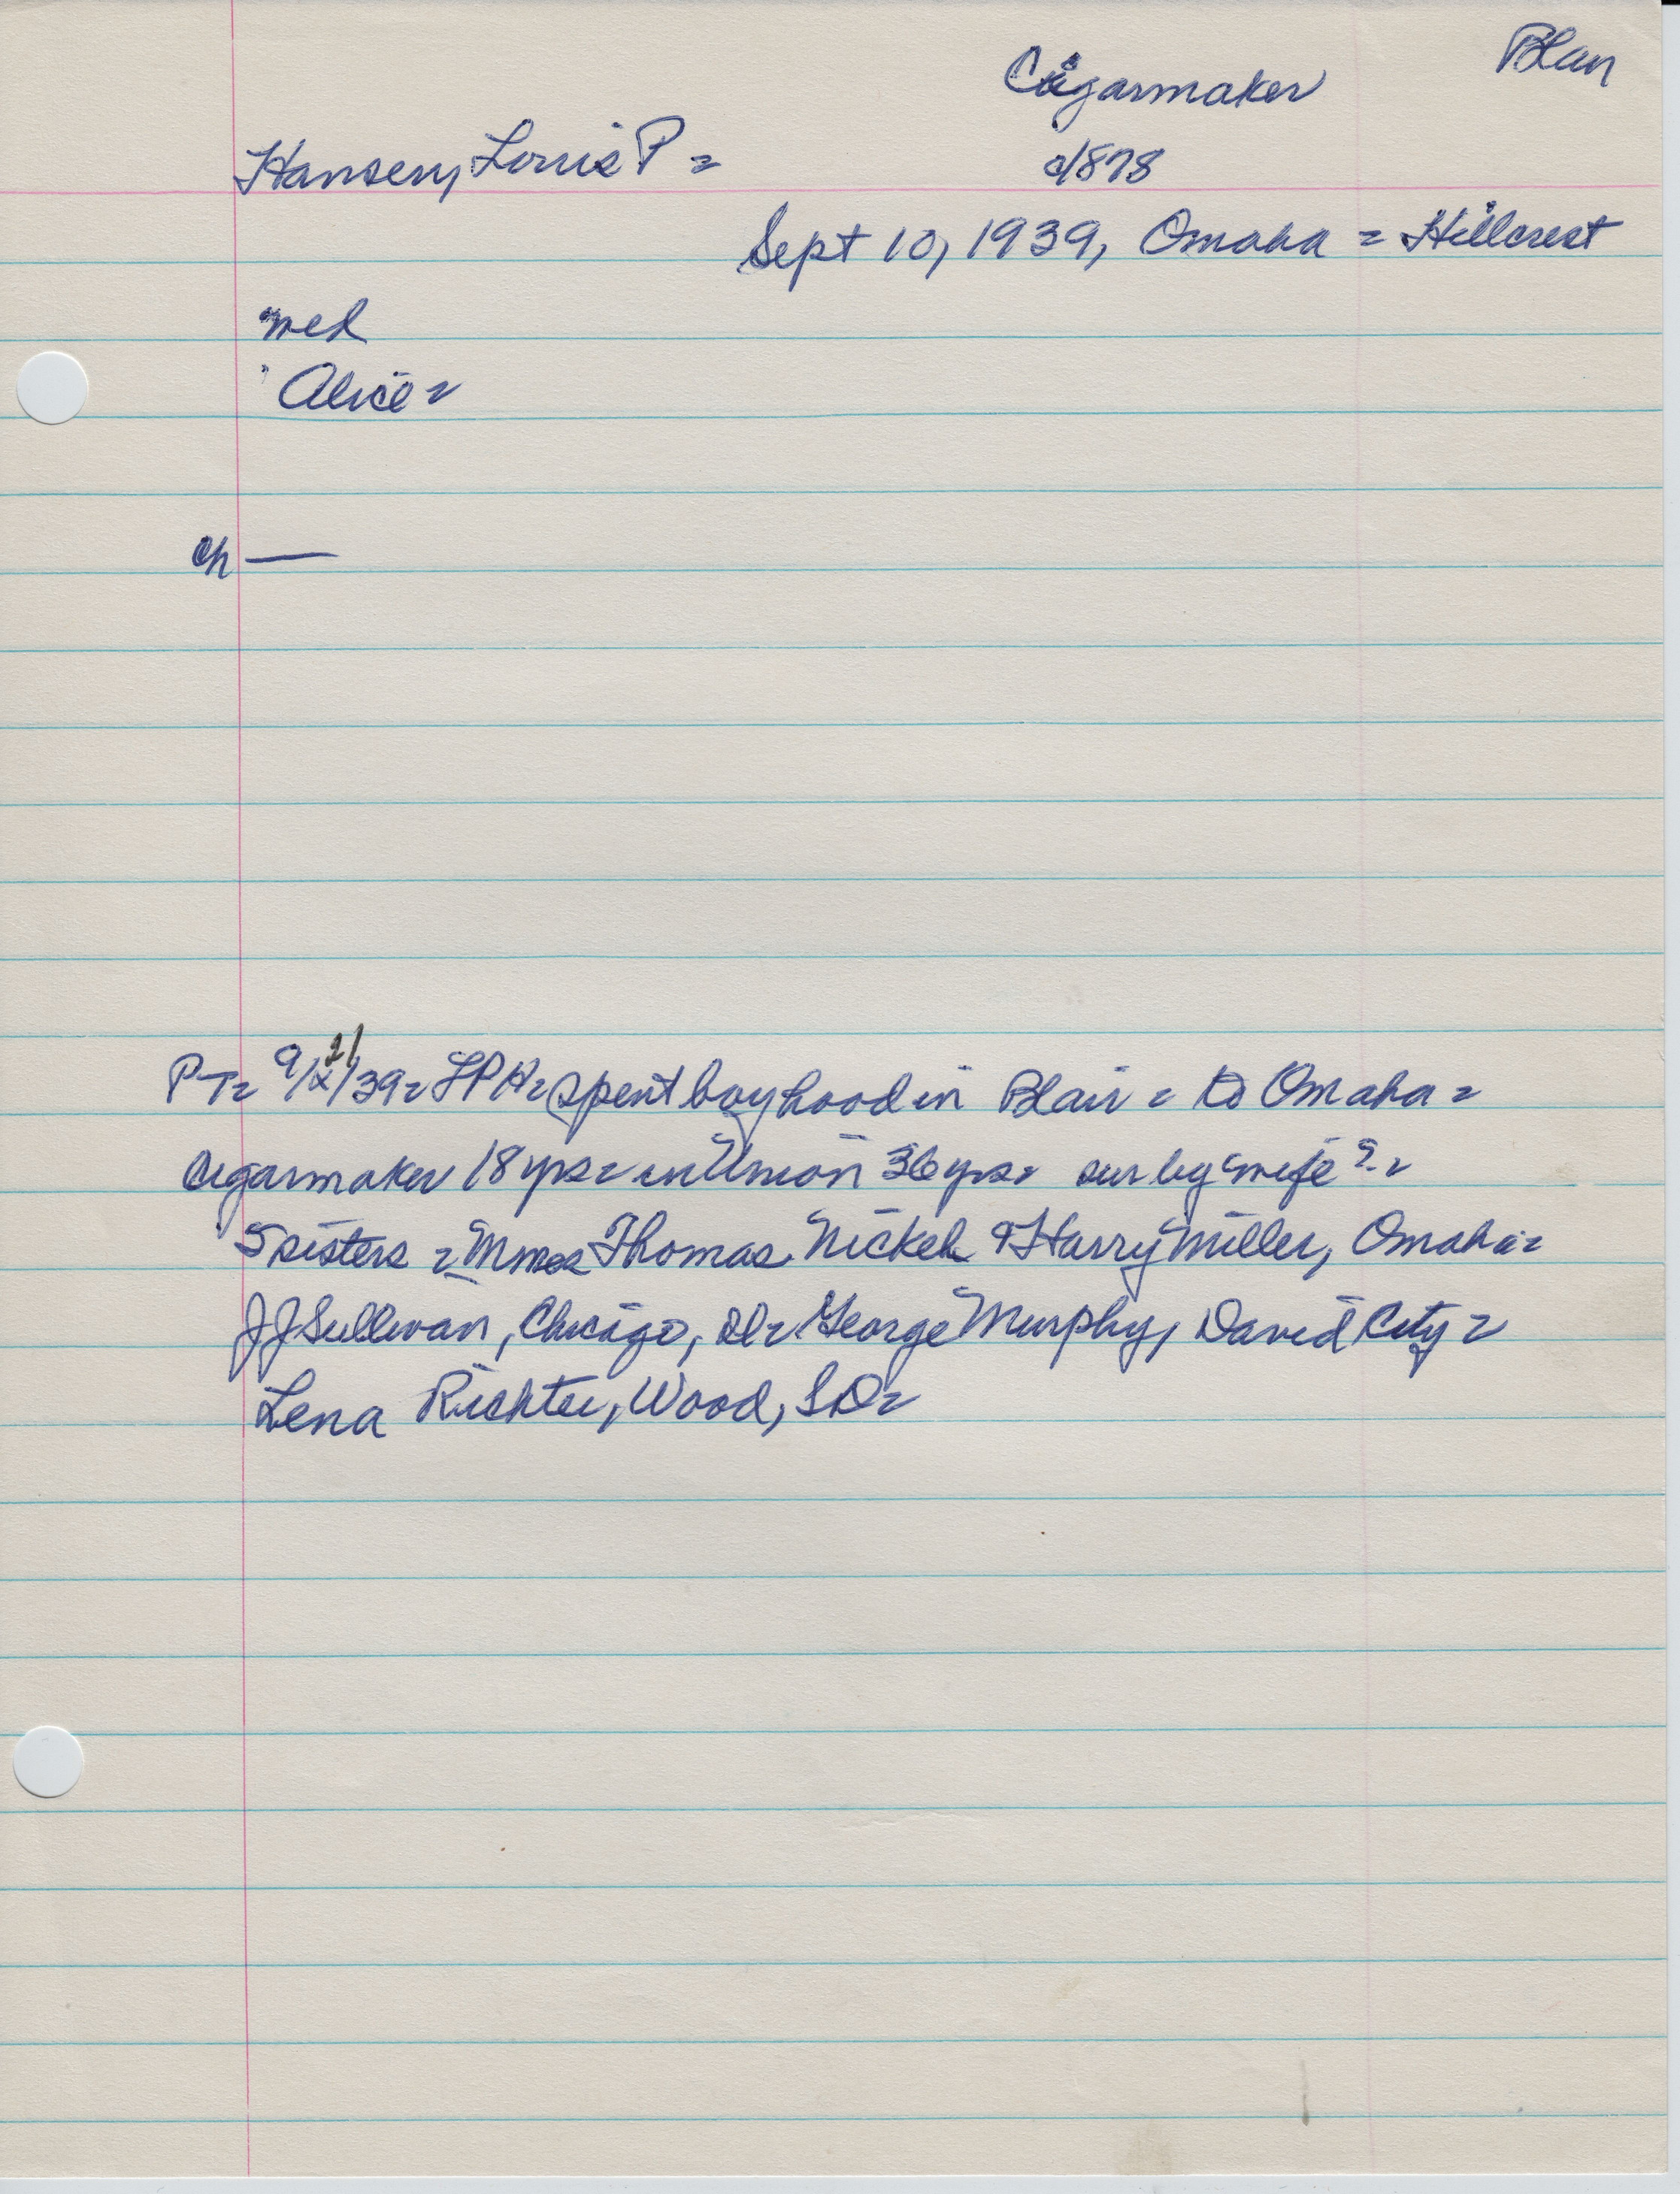 Blair
Cigarmaker
Hansen, Louis P =
c1878
Sept 10, 1939, Omaha = Hillcrest
med
Alice =
ch —
PT= 9/21/39= LPH= spent boyhood in Blair = to Omaha =
cigarmaker 18 yrs= in Union 36 yrs= sur by wife ?. =
5 sisters = Mmes Thomas Nickel & Harry Miller, Omaha =
J J Sullivan, Chicago, Ill= George Murphy, David City =
Lena Richter, Wood, SD=